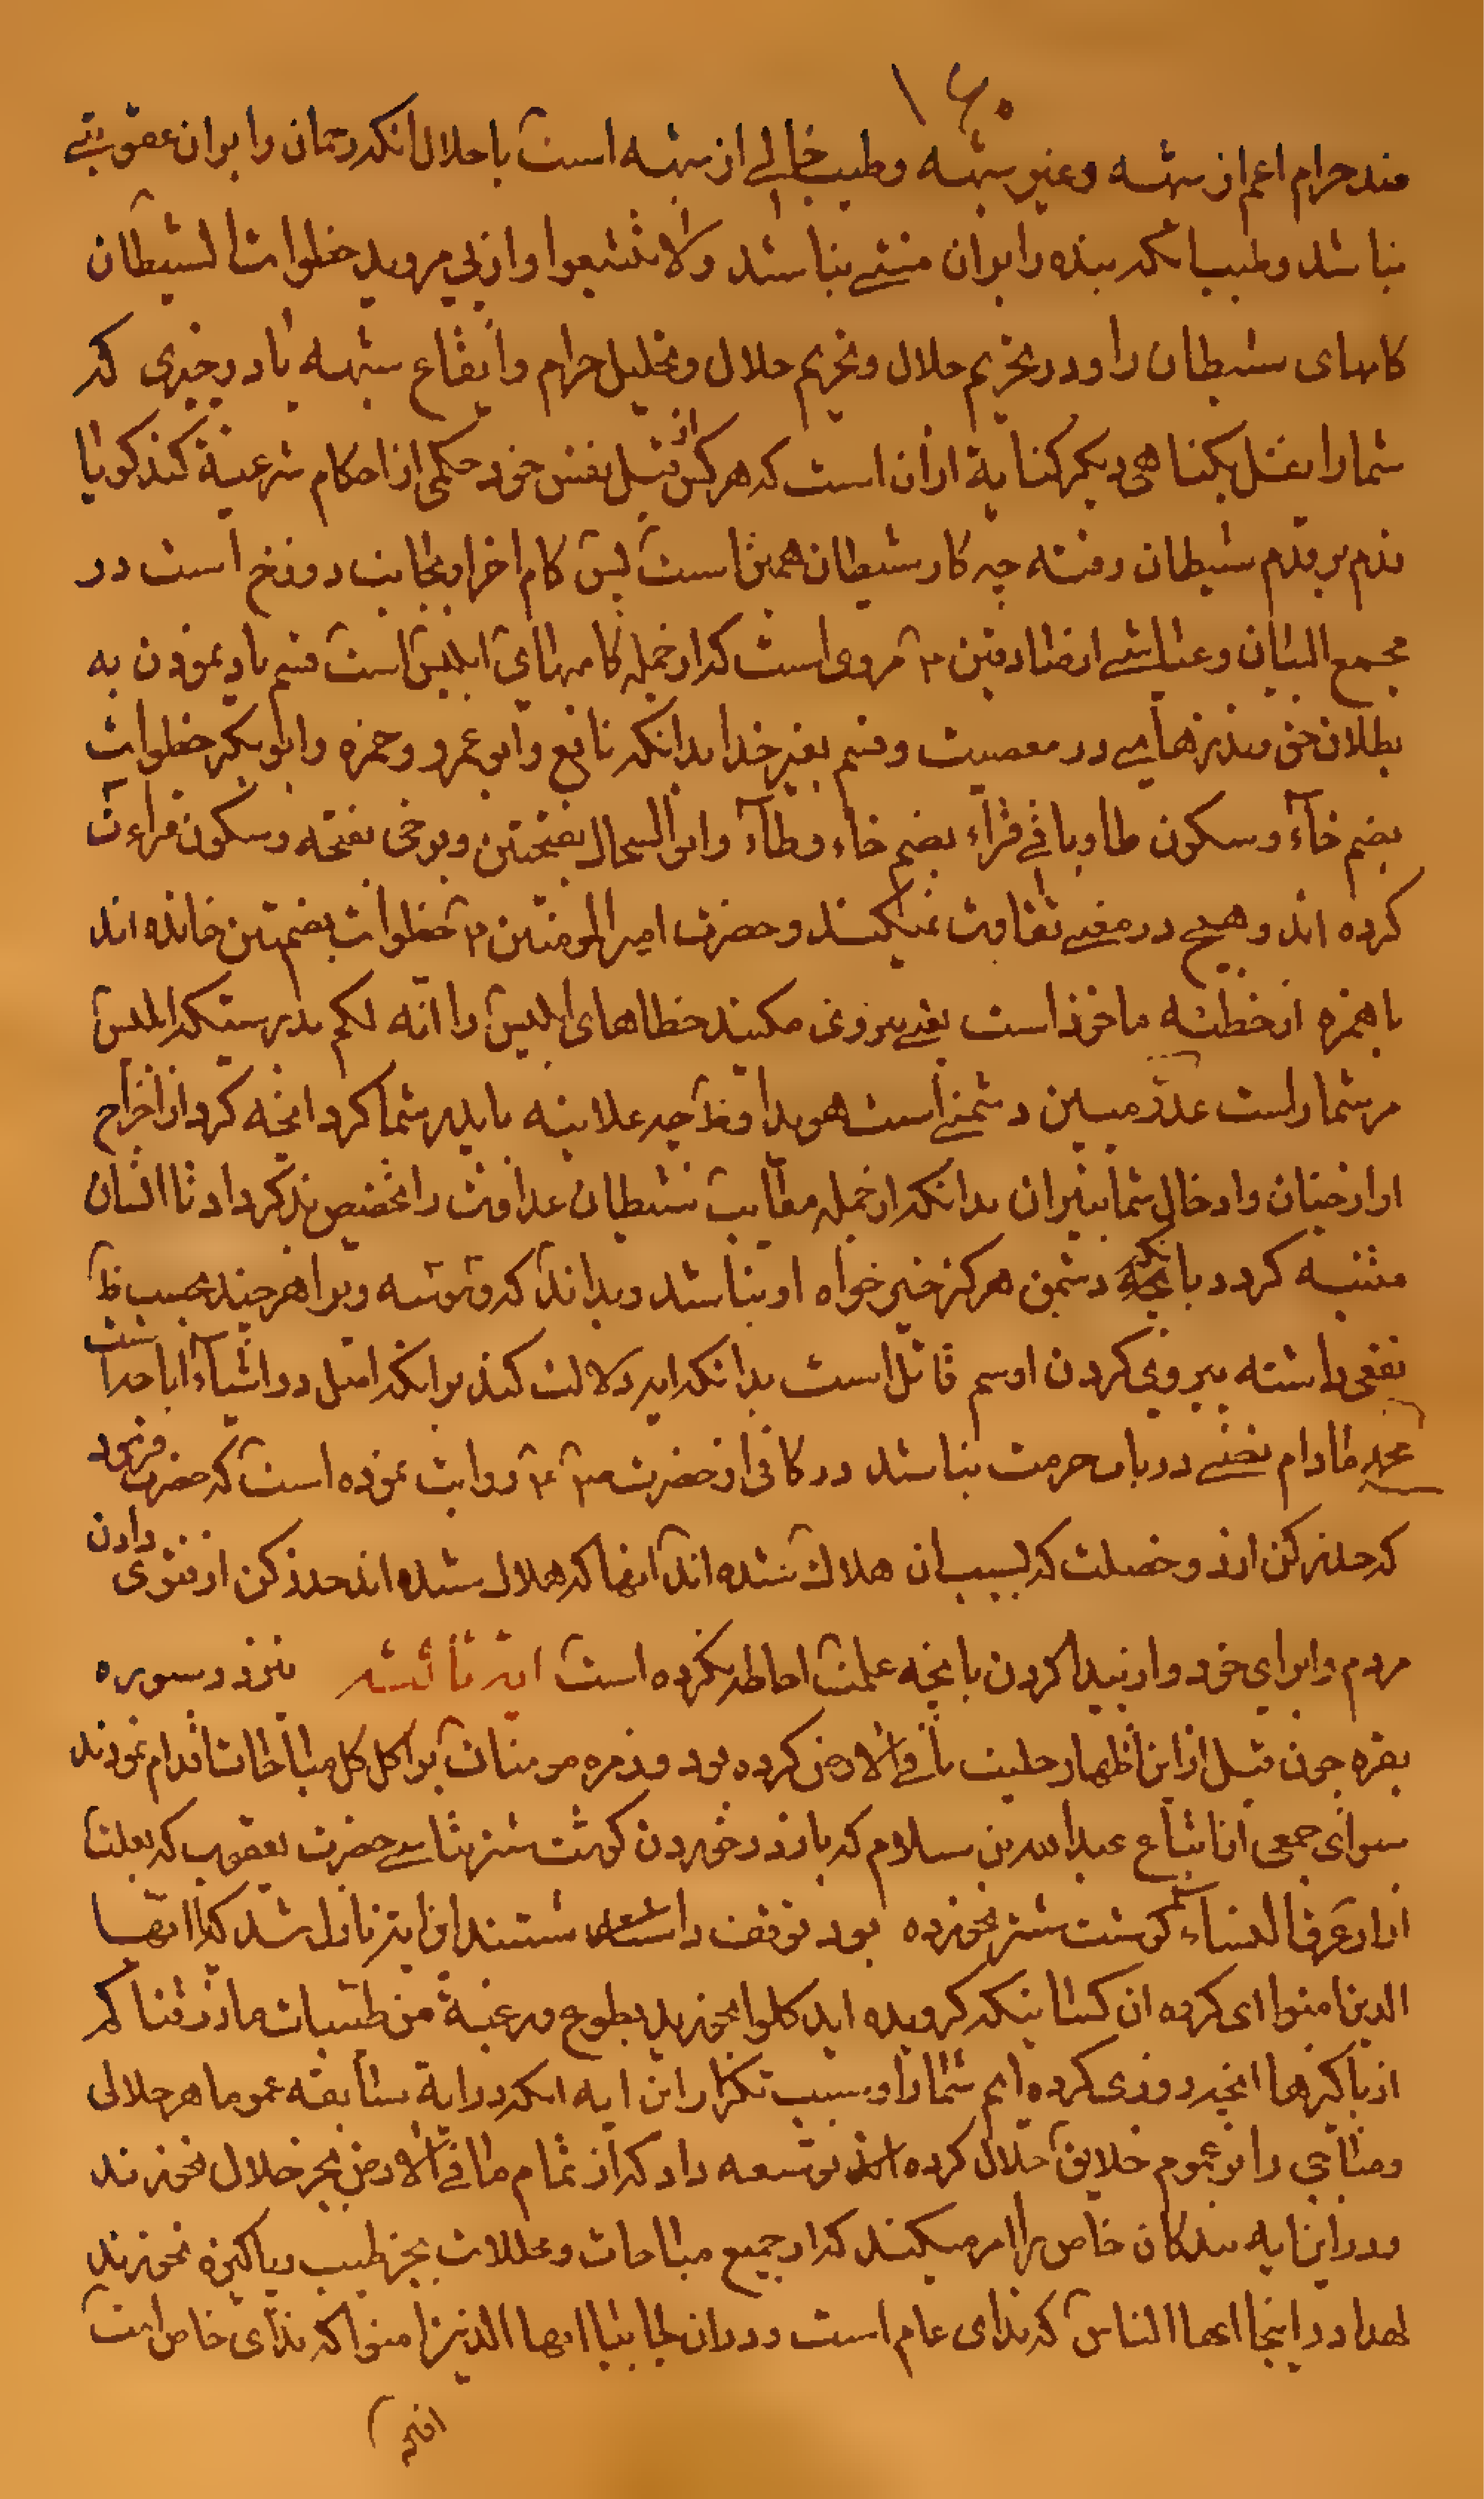 ۱۶۰
ضد حرام اعم از شبهه وغیر شبهه وطیب خالی از شبهه است با حلال انکه رحمان را بران عقوبتی
نباشد وطیب انکه بنده را بران منتی نباشد ولا تتبعوا واز پی مروید خطوات الشیطان
کامهای شیطان را ودر تحریم حلال وتحریم حلال وتحلیل حرام وایقاع شبهه یا در چیزی که
شما را بکناهی دیکر کنایة از ان است که هر کس از قبل نفس خود حکمی از احکام شرعیة کند کویا
قدم بر قدم شیطان رفته چه کار شیطان همین است پس کام اخر او بجانب دوزخ است در
مجمع البیان وعیاشی از صادقین ۴ مروی است که از جمله کامهای ابلیس است قسم یاد نمودن به
بطلان حق ونذرهایی در معصیت وقسم بغیر خدا بدانکه نافع وابو عمرو وحمزه وابوبکر خطوات
بضم خآء وسکون طا وباقی قراء بضم خاء وطآء وابو السمال بفتحتین وبرخی بفتحه وسکون قراءت
کرده اند وهیچ در معنی تفاوت نمیکند وحضرت امیر المومنین ۴ خطوات بضمتین خوانده اند
با همزه از خطئه ماخوذ است یعنی پیروی مکنید خطاهای ابلیس را انّه لکم بدرستیکه ابلیس
مر شما راست عدوّ مبین دشمنی است هویدا چه علانیه با پدر شما کرد انچه کرد از اخراج
او از جنان وادخال شما بنیران بدانکه از جمله معایب شیطان عداوت را تخصیص بذکر داد تا انسان
متنبه کردد بانکه دشمن هرکز خیر خواه او نباشد وبداند که وسوسه ویرا هر چند بحسب ظ
نفعی داشته پیروی کردن او سم قاتل است بدانکه ایه دلالت کند بر انکه اصل در اشیآء اباحه است
مادام نصی در باب حرمت نباشد در کافی از حضرت ص ۴ روایت نموده است که حضرت فرمود
که حذر کن از دو خصلت که بسبب ان هلاک شده اند انها که هلاک شده اند حذر کن از فتوی دادن
مردم را برای خود واز پیدا کردن بانچه علمت احاطه نکرده است ایه ثالثه نیز در سوره
بقره چون قبل از این اظهار حلیت ما فی الارض کرده بود وزمره مومنان بر اکل کل مباحات اقدام نمودند
سوای جمعی از اتباع عبد الله بن سلام که باز در خوردن کوشت شتر بتاسی حضرت یعقوب که بعلت
ازار عرق النساء کوشت شتر نخورده بود توقف داشتند این ایه نازل شد که یا ایها
الذین امنوا ای کروه ان کسانیکه کرویده اید کلوا بخورید بطوع ورغبة من طیبات ما رزقناکم
از پاکیزها انچه روزی کرده ایم شما را وسبب تکرار این ایه انکه در ایة سابقه عموما هر حلالی
ومباحی را بر عموم خلایق حلال کرده توسعه داد که از تمام ما فی الارض بجز حلال نخورند
ودر این ایه بندکان خاص را امر میکند که از جمیع مباحات ومحللات بجز طیب وپاکیزه نخورند
لهذا در اینجا ایها الناس که ندای عام است ودر ان جا یا ایها الذین امنوا که ندای خاص است